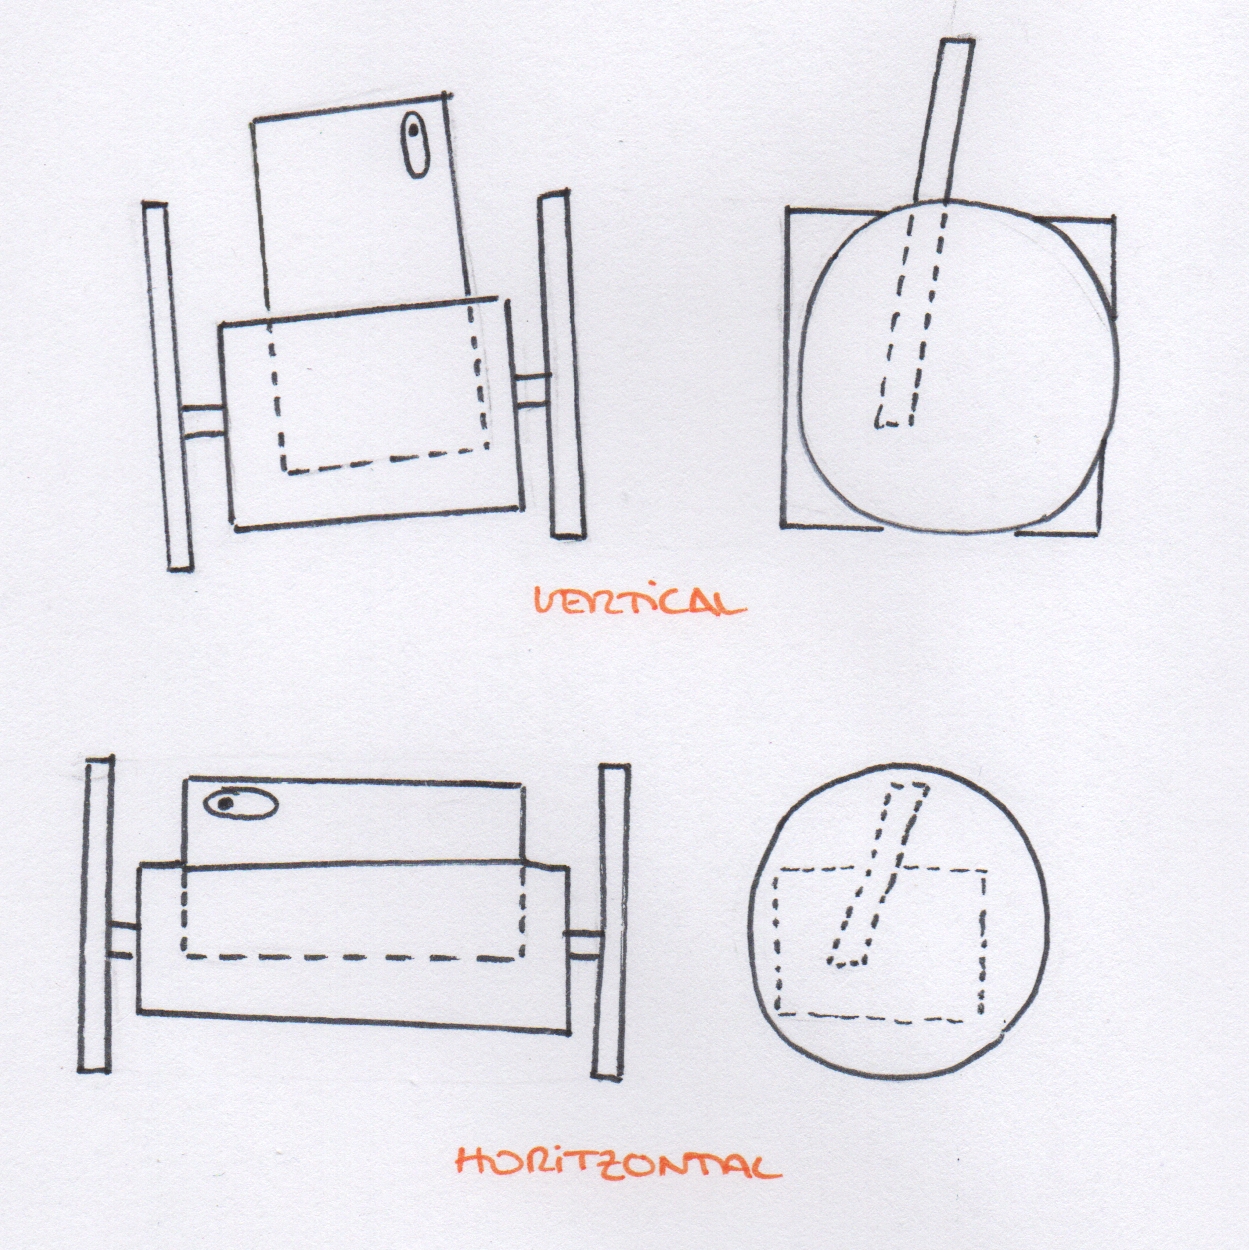 VERTiCAL
HORiTZONTAL